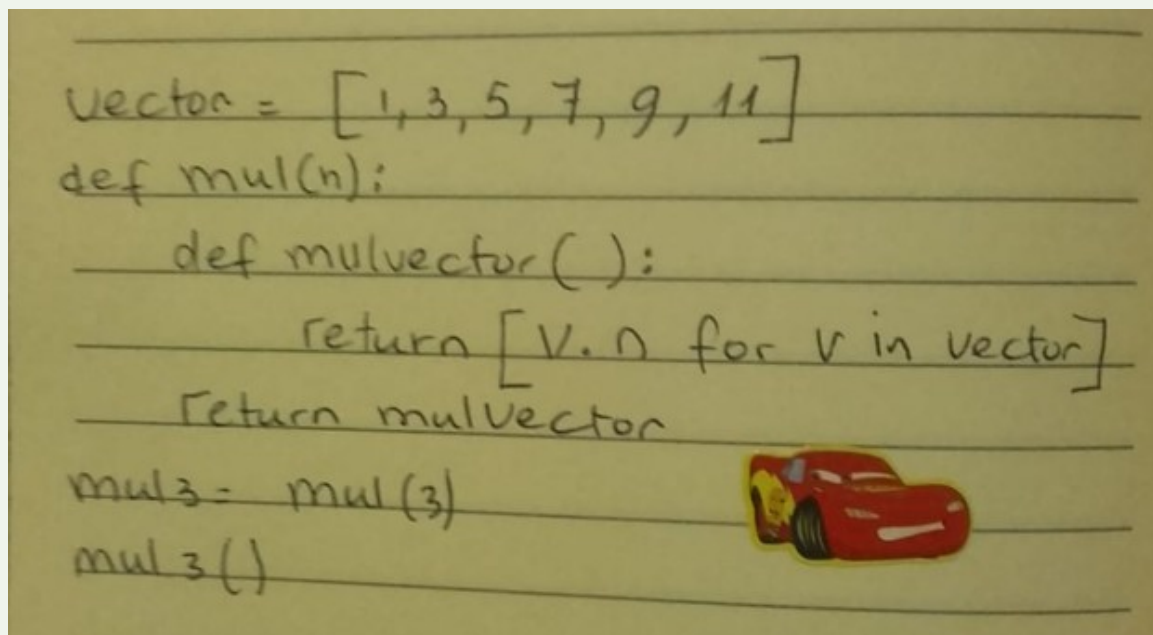 vector = [1, 3, 5, 7, 9, 11]
def mul(n):
def mulvector():
return [v.n for v in vector]
return mulvector
mul3 = mul(3)
mul3()